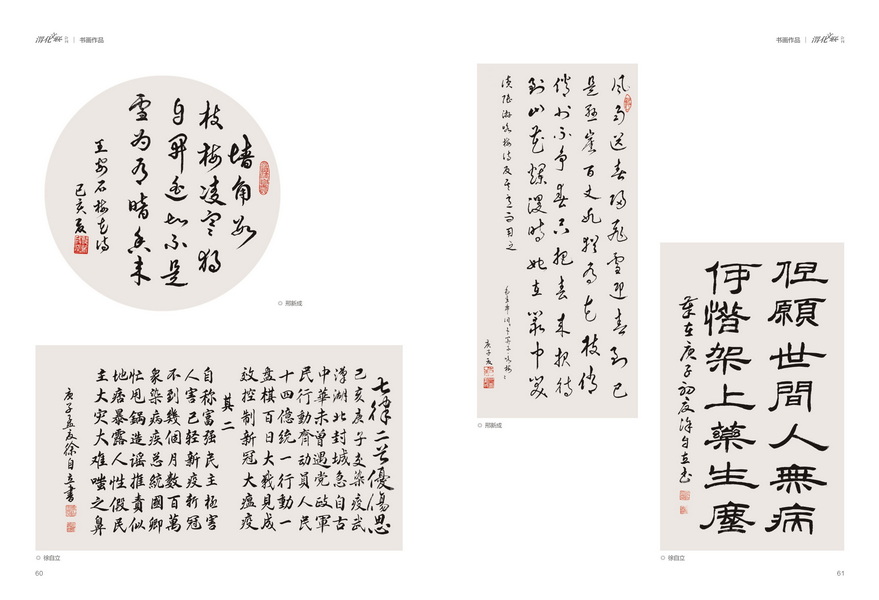 书画作品
书画作品
墙角数
枝梅凌寒独
自开遥知不是
雪为有暗香来
王安石梅花诗
己亥夏
邢新成
七律二首忧伤思
己亥庚子交染疫武
汉湖北封城急自古
中华未曾遇党政军
民行动齐动员人民
十四亿统一行动一
盘棋百日大战见成
效控制新冠大瘟疫
其二
自称富强民主极害
人害己轻新疫新冠
不到几個月数百萬
衆染病疾总統國卿
忙甩鍋造谣推責似
地痞暴露人性假民
主大灾大难嗤之鼻
庚子孟夏徐自立書
徐自立
60
风雨送春归飞雪迎春到已
是悬崖百丈冰犹有花枝俏
俏也不争春只把春来报待
到山花烂漫时她在丛中笑
读陆游咏梅诗反其意而用之
庚子夏
邢新成
但願世間人無病
何惜架上藥生塵
歲在庚子初夏徐自立书
徐自立
61